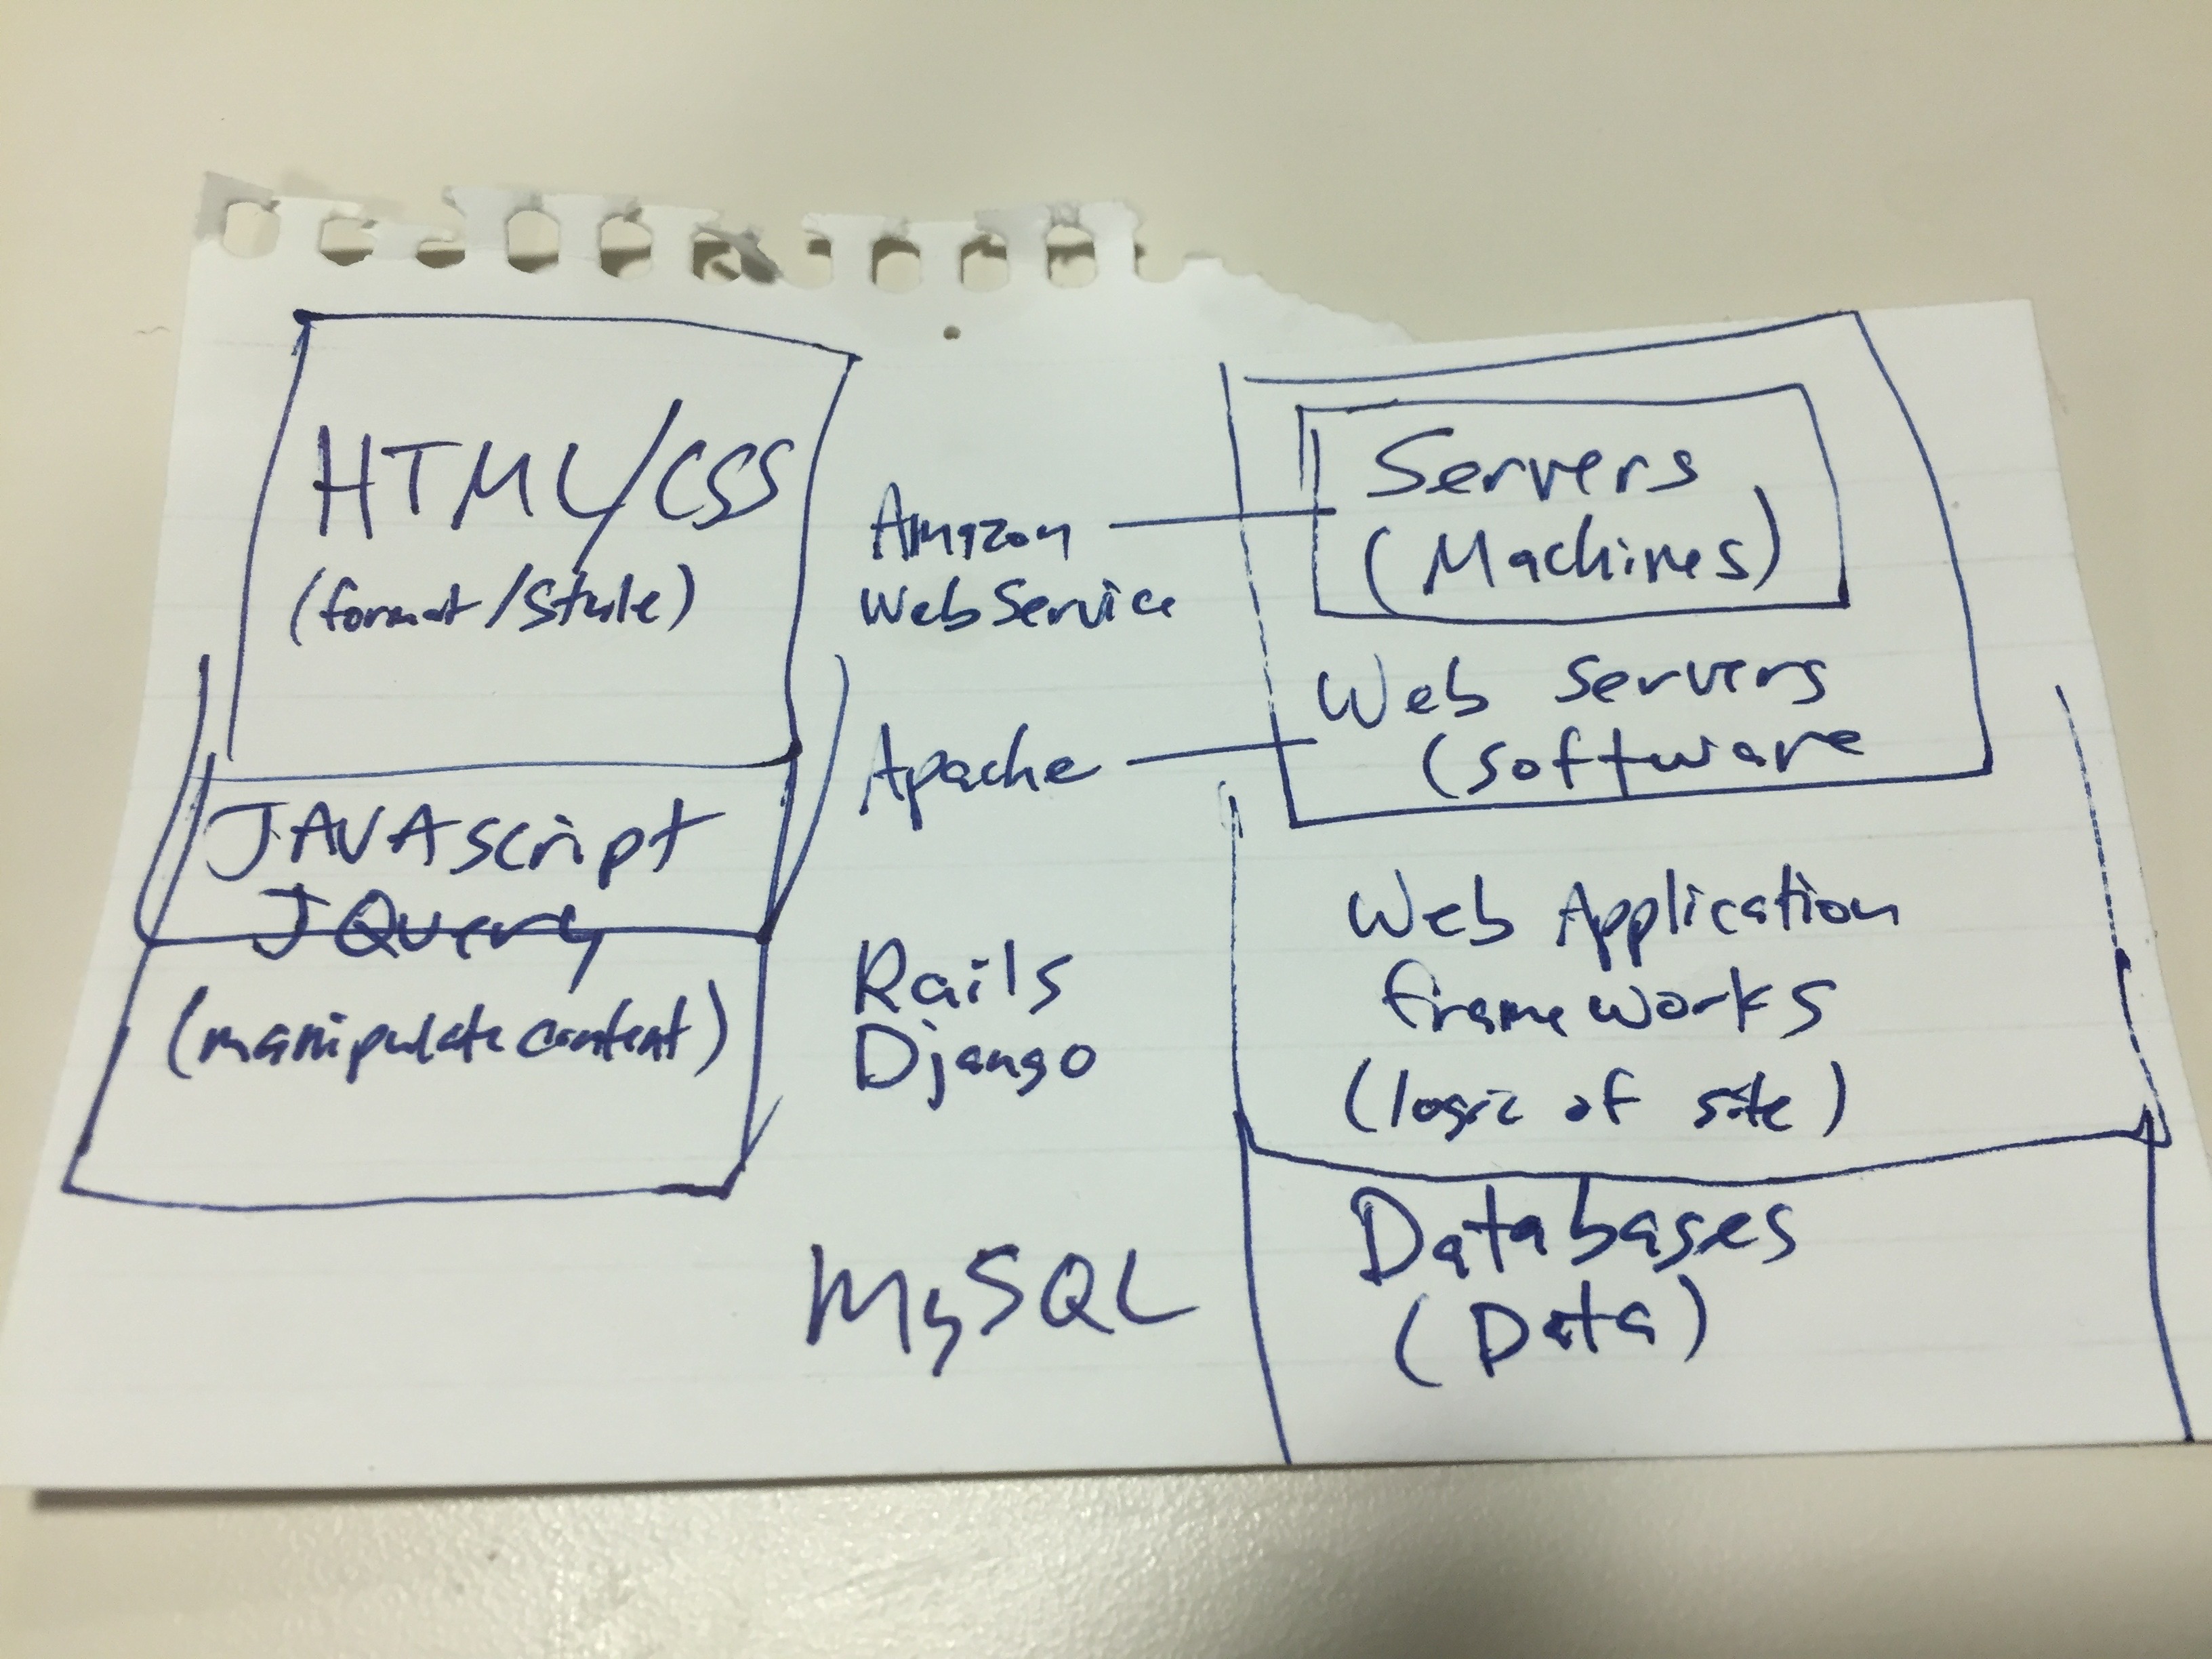 HTML/CSS
(format/Style)
JAVAscript
JQuery
(manipulate content)
Amazon
Web Service
Apache
Rails
Django
MySQL
Servers
(Machines)
Web Servers
(Software
Web Application
frameworks
(logic of site)
Databases
(Data)